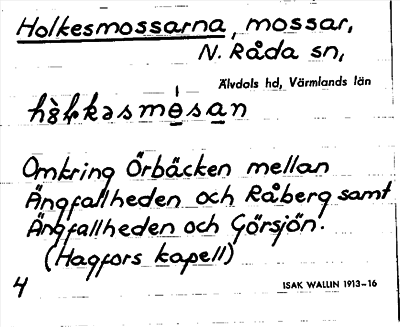 Holkesmossarna, mossar,
N. Råda sn,
Älvdals hd, Värmlands län
Omkring Örbäcken mellan
Ängfallheden och Råberg samt
Ängfallheden och Görsjön.
(Hagfors kapell)
4
ISAK WALLIN 1913–16